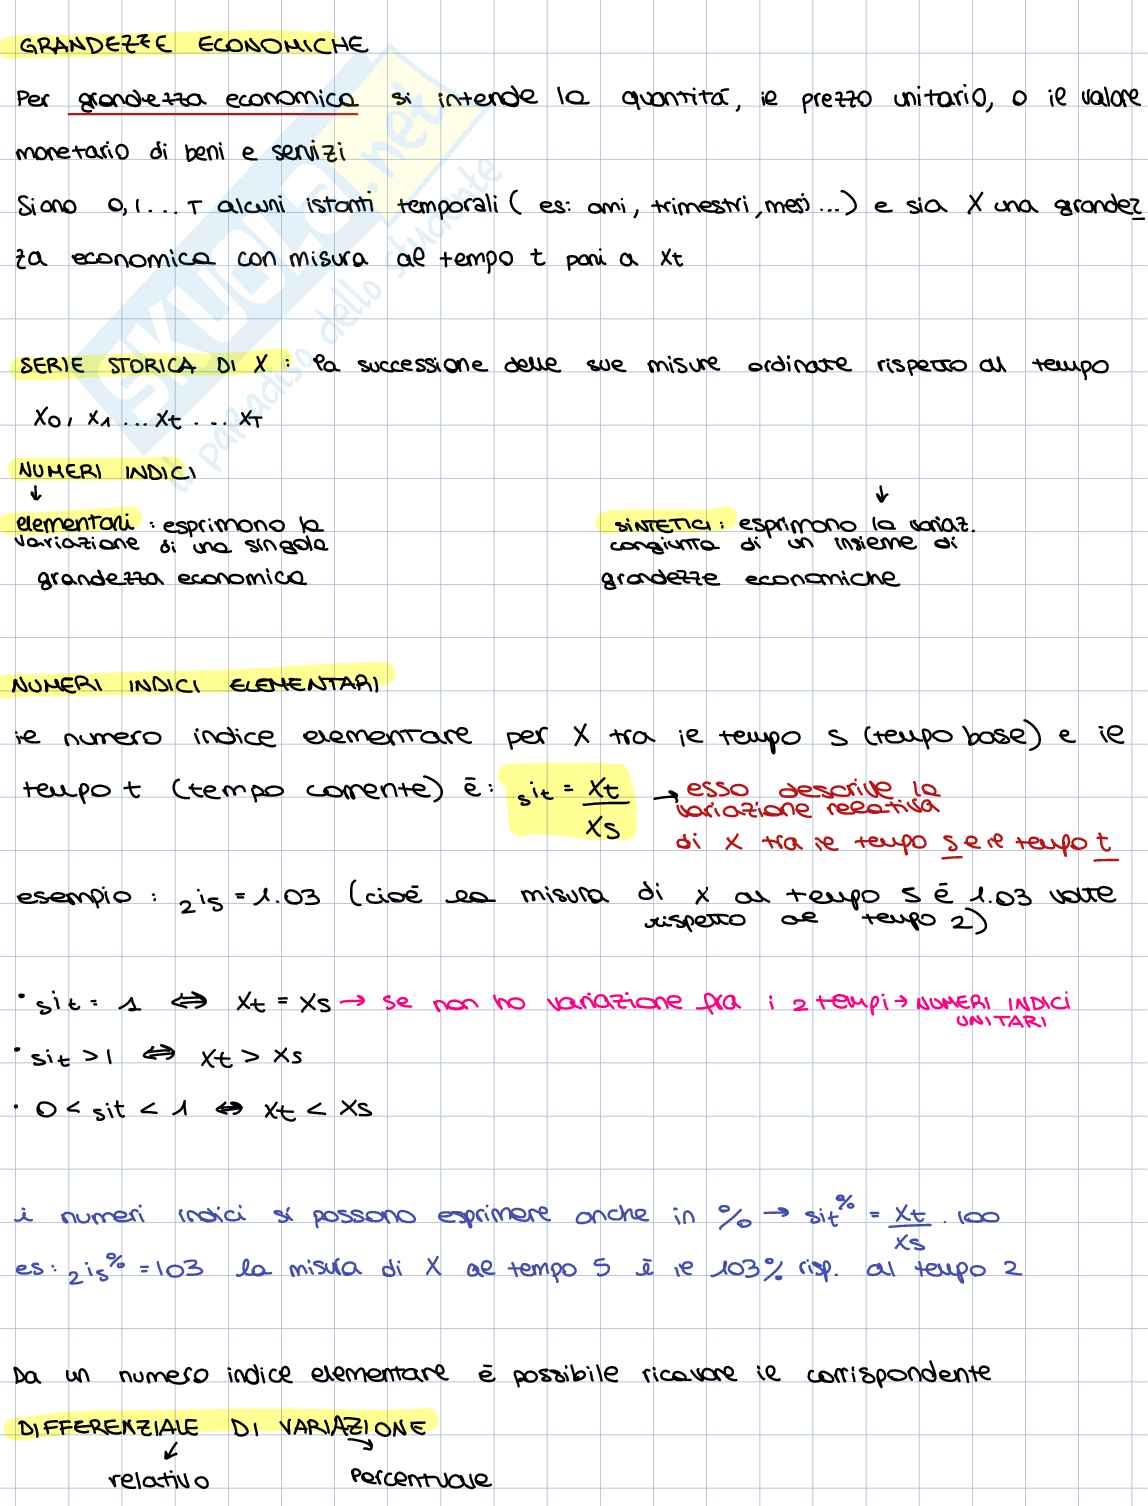 GRANDEZZE ECONOMICHE
Per grandezza economica si intende la quantità, il prezzo unitario, o il valore
monetario di beni e servizi
Siano 0,1...T alcuni istanti temporali (es: anni, trimestri, mesi...) e sia X una grandez
za economica con misura al tempo t pari a Xt
SERIE STORICA DI X: la successione delle sue misure ordinate rispetto al tempo
X0, X1 ... Xt ... XT
NUMERI INDICI
↓ ↓
elementari: esprimono la
variazione di una singola
grandezza economica
SINTETICI: esprimono la variaz.
congiunta di un insieme di
grandezze economiche
NUMERI INDICI ELEMENTARI
il numero indice elementare per X tra il tempo s (tempo base) e il
tempo t (tempo corrente) è: sit = Xt/Xs → esso descrive la
variazione relativa
di X tra il tempo s e il tempo t
esempio: 2i5 = 1.03 (cioè la misura di X al tempo 5 è 1.03 volte
rispetto al tempo 2)
• sit = 1 ⇔ Xt = Xs → se non ho variazione fra i 2 tempi → NUMERI INDICI
UNITARI
• sit > 1 ⇔ Xt > Xs
• 0 < sit < 1 ⇔ Xt < Xs
i numeri indici si possono esprimere anche in % → sit% = Xt/Xs · 100
es: 2i5% = 103 la misura di X al tempo 5 è il 103% risp. al tempo 2
Da un numero indice elementare è possibile ricavare il corrispondente
DIFFERENZIALE DI VARIAZIONE
relativo percentuale
SKUOLA.net
il paradiso dello studente